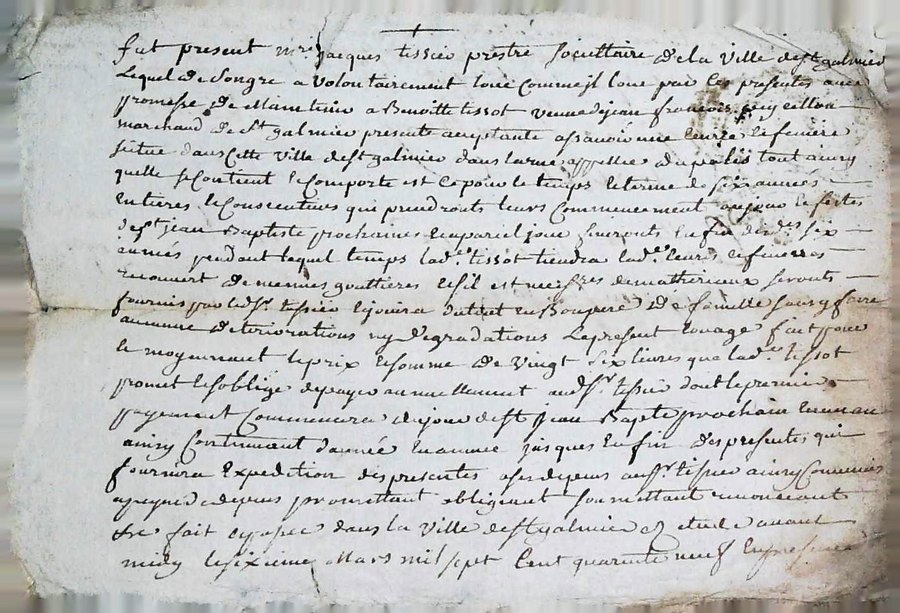 fut present mre jacques tissier prestre societtaire de la ville de st galmier
Lequel de son gre a volontairement loué comme jl loue par ces presentes avec
promesse de maintenir a Benoitte tissot veuve de jean françois
marchand de st galmier presente acceptante assavoir une
situé dans cette ville de st galmier dans la rue appellee du palais tout ainsy
quelle se contient & comporte est ce pour le temps & terme de six années
Entieres & consecutives qui prendronts leurs commencement aujour & festes
de st jean Baptiste prochaines & a pareil jour finironts En fin des des six
années pendant lequel temps lade tissot tiendra lade
recouvert de mennes gouttieres & sil est necessres de mathériaux seronts
fournis par led sr tissier & jouira du tout En Bon pere de famille sans y faire
aucunne déteriorations ny degradations Le present Louage fait pour
& moyennant le prix & somme de vingt six livres que lade tissot
promet & soblige de payer annuellement aud sr tissier dont le premier
payement commencera du jour de st jean Baptiste prochain En un an
ainsy continuant dannée En année jusques En fin des presentes qui
fournira Expedition des presentes a ses depens aud sr tissier ainsy convenus
a peyne de depens promettant obligeant soumettant renonceant
&c fait et passé dans la ville de st galmier etude avant
midy le sixieme mars mil sept cent quarente neuf En presence